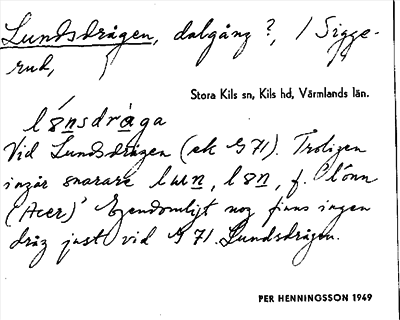 Lundsdrågen, dalgång?, i Sigge-
rud,
Stora Kils sn, Kils hd, Värmlands län.
lo̵nsdrɑga
Vid Lundsdrågen (ek G 71). Troligen
ingår snarare
f. lönn
(Acer)' Egendomligt nog finns ingen
dråg just vid G 71. Lundsdrågen.
PER HENNINGSSON 1949